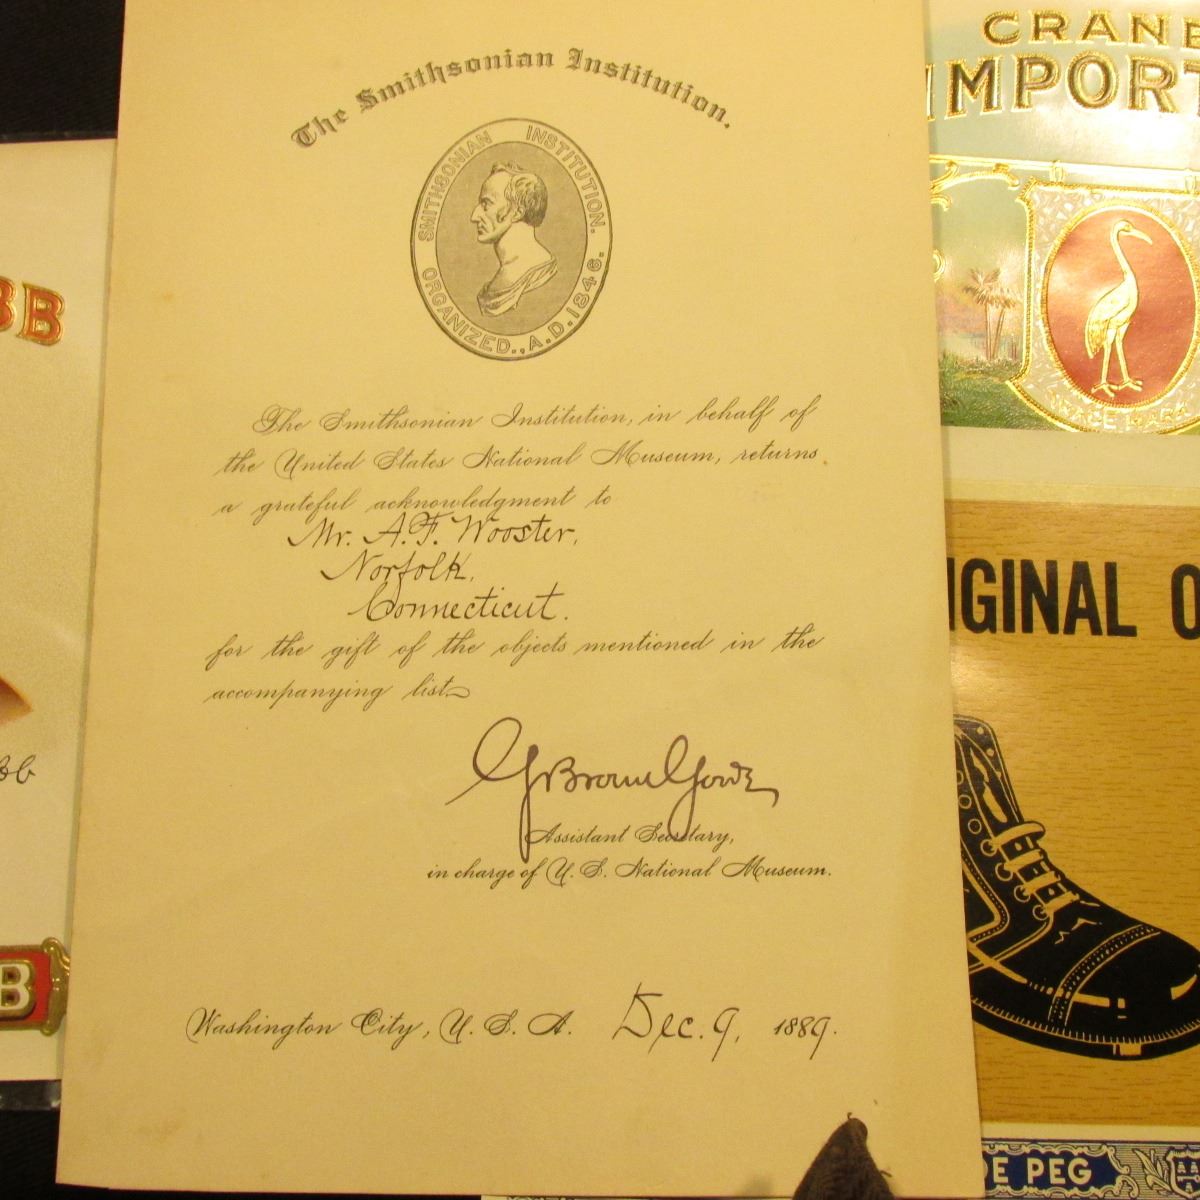 The Smithsonian Institution.
SMITHSONIAN INSTITUTION.
ORGANIZED., A.D. 1846.
The Smithsonian Institution, in behalf of
the United States National Museum, returns
a grateful acknowledgment to
Mr. A. F. Wooster,
Norfolk,
Connecticut.
for the gift of the objects mentioned in the
accompanying list
G Brown Goode
Assistant Secretary,
in charge of U. S. National Museum.
Washington City, U. S. A. Dec. 9, 1889.
BB
bb
B
CRANE
IMPORT
TRADE MARK
IGINAL O
DE PEG